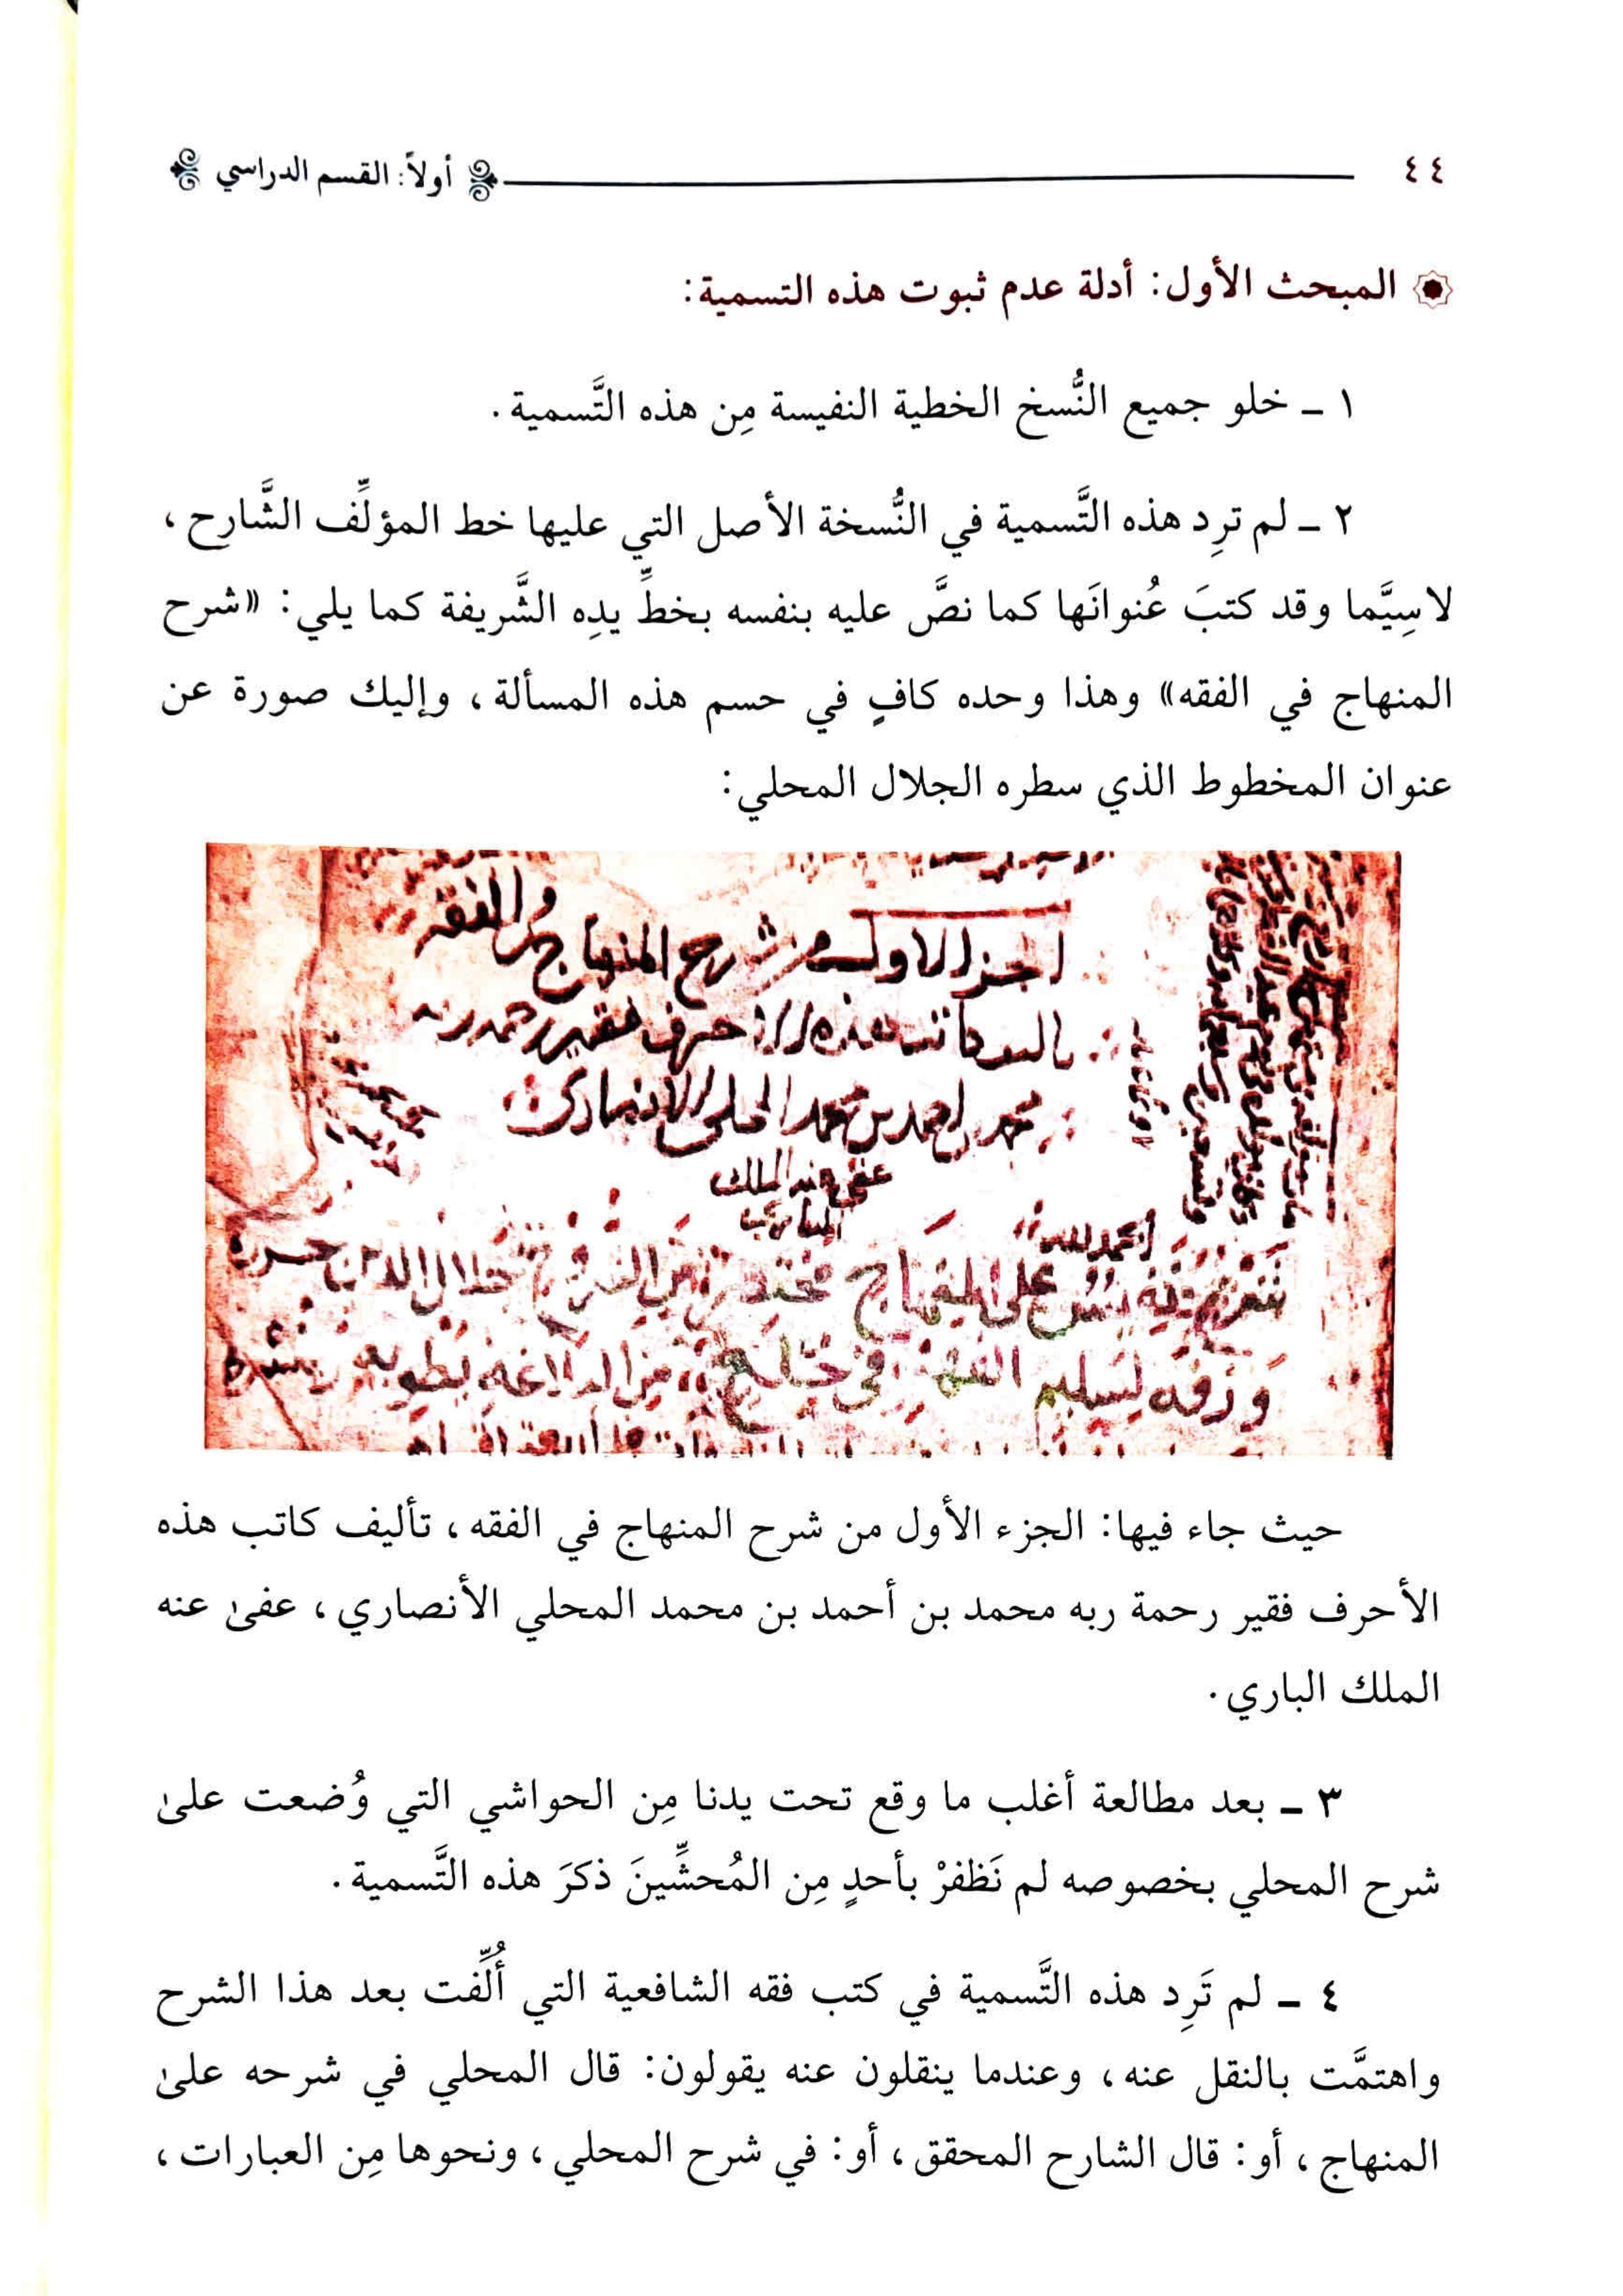 ٤٤ أولاً: القسم الدراسي
المبحث الأول: أدلة عدم ثبوت هذه التسمية:
١ ـ خلو جميع النُّسخ الخطية النفيسة مِن هذه التَّسمية.
٢ ـ لم ترِد هذه التَّسمية في النُّسخة الأصل التي عليها خط المؤلِّف الشَّارح،
لاسِيَّما وقد كتبَ عُنوانَها كما نصَّ عليه بنفسه بخطِّ يدِه الشَّريفة كما يلي: «شرح
المنهاج في الفقه» وهذا وحده كافٍ في حسم هذه المسألة، وإليك صورة عن
عنوان المخطوط الذي سطره الجلال المحلي:
الجزء الاول من شرح المنهاج في الفقه
تاليف كاتب هذه الاحرف فقير رحمة ربه
محمد بن احمد بن محمد المحلي الانصاري
عفى عنه الملك
الحمد لله
على المنهاج جلال الدين
حيث جاء فيها: الجزء الأول من شرح المنهاج في الفقه، تأليف كاتب هذه
الأحرف فقير رحمة ربه محمد بن أحمد بن محمد المحلي الأنصاري، عفىٰ عنه
الملك الباري.
٣ ـ بعد مطالعة أغلب ما وقع تحت يدنا مِن الحواشي التي وُضعت علىٰ
شرح المحلي بخصوصه لم نَظفرْ بأحدٍ مِن المُحشِّينَ ذكرَ هذه التَّسمية.
٤ ـ لم تَرِد هذه التَّسمية في كتب فقه الشافعية التي أُلِّفت بعد هذا الشرح
واهتمَّت بالنقل عنه، وعندما ينقلون عنه يقولون: قال المحلي في شرحه علىٰ
المنهاج، أو: قال الشارح المحقق، أو: في شرح المحلي، ونحوها مِن العبارات،